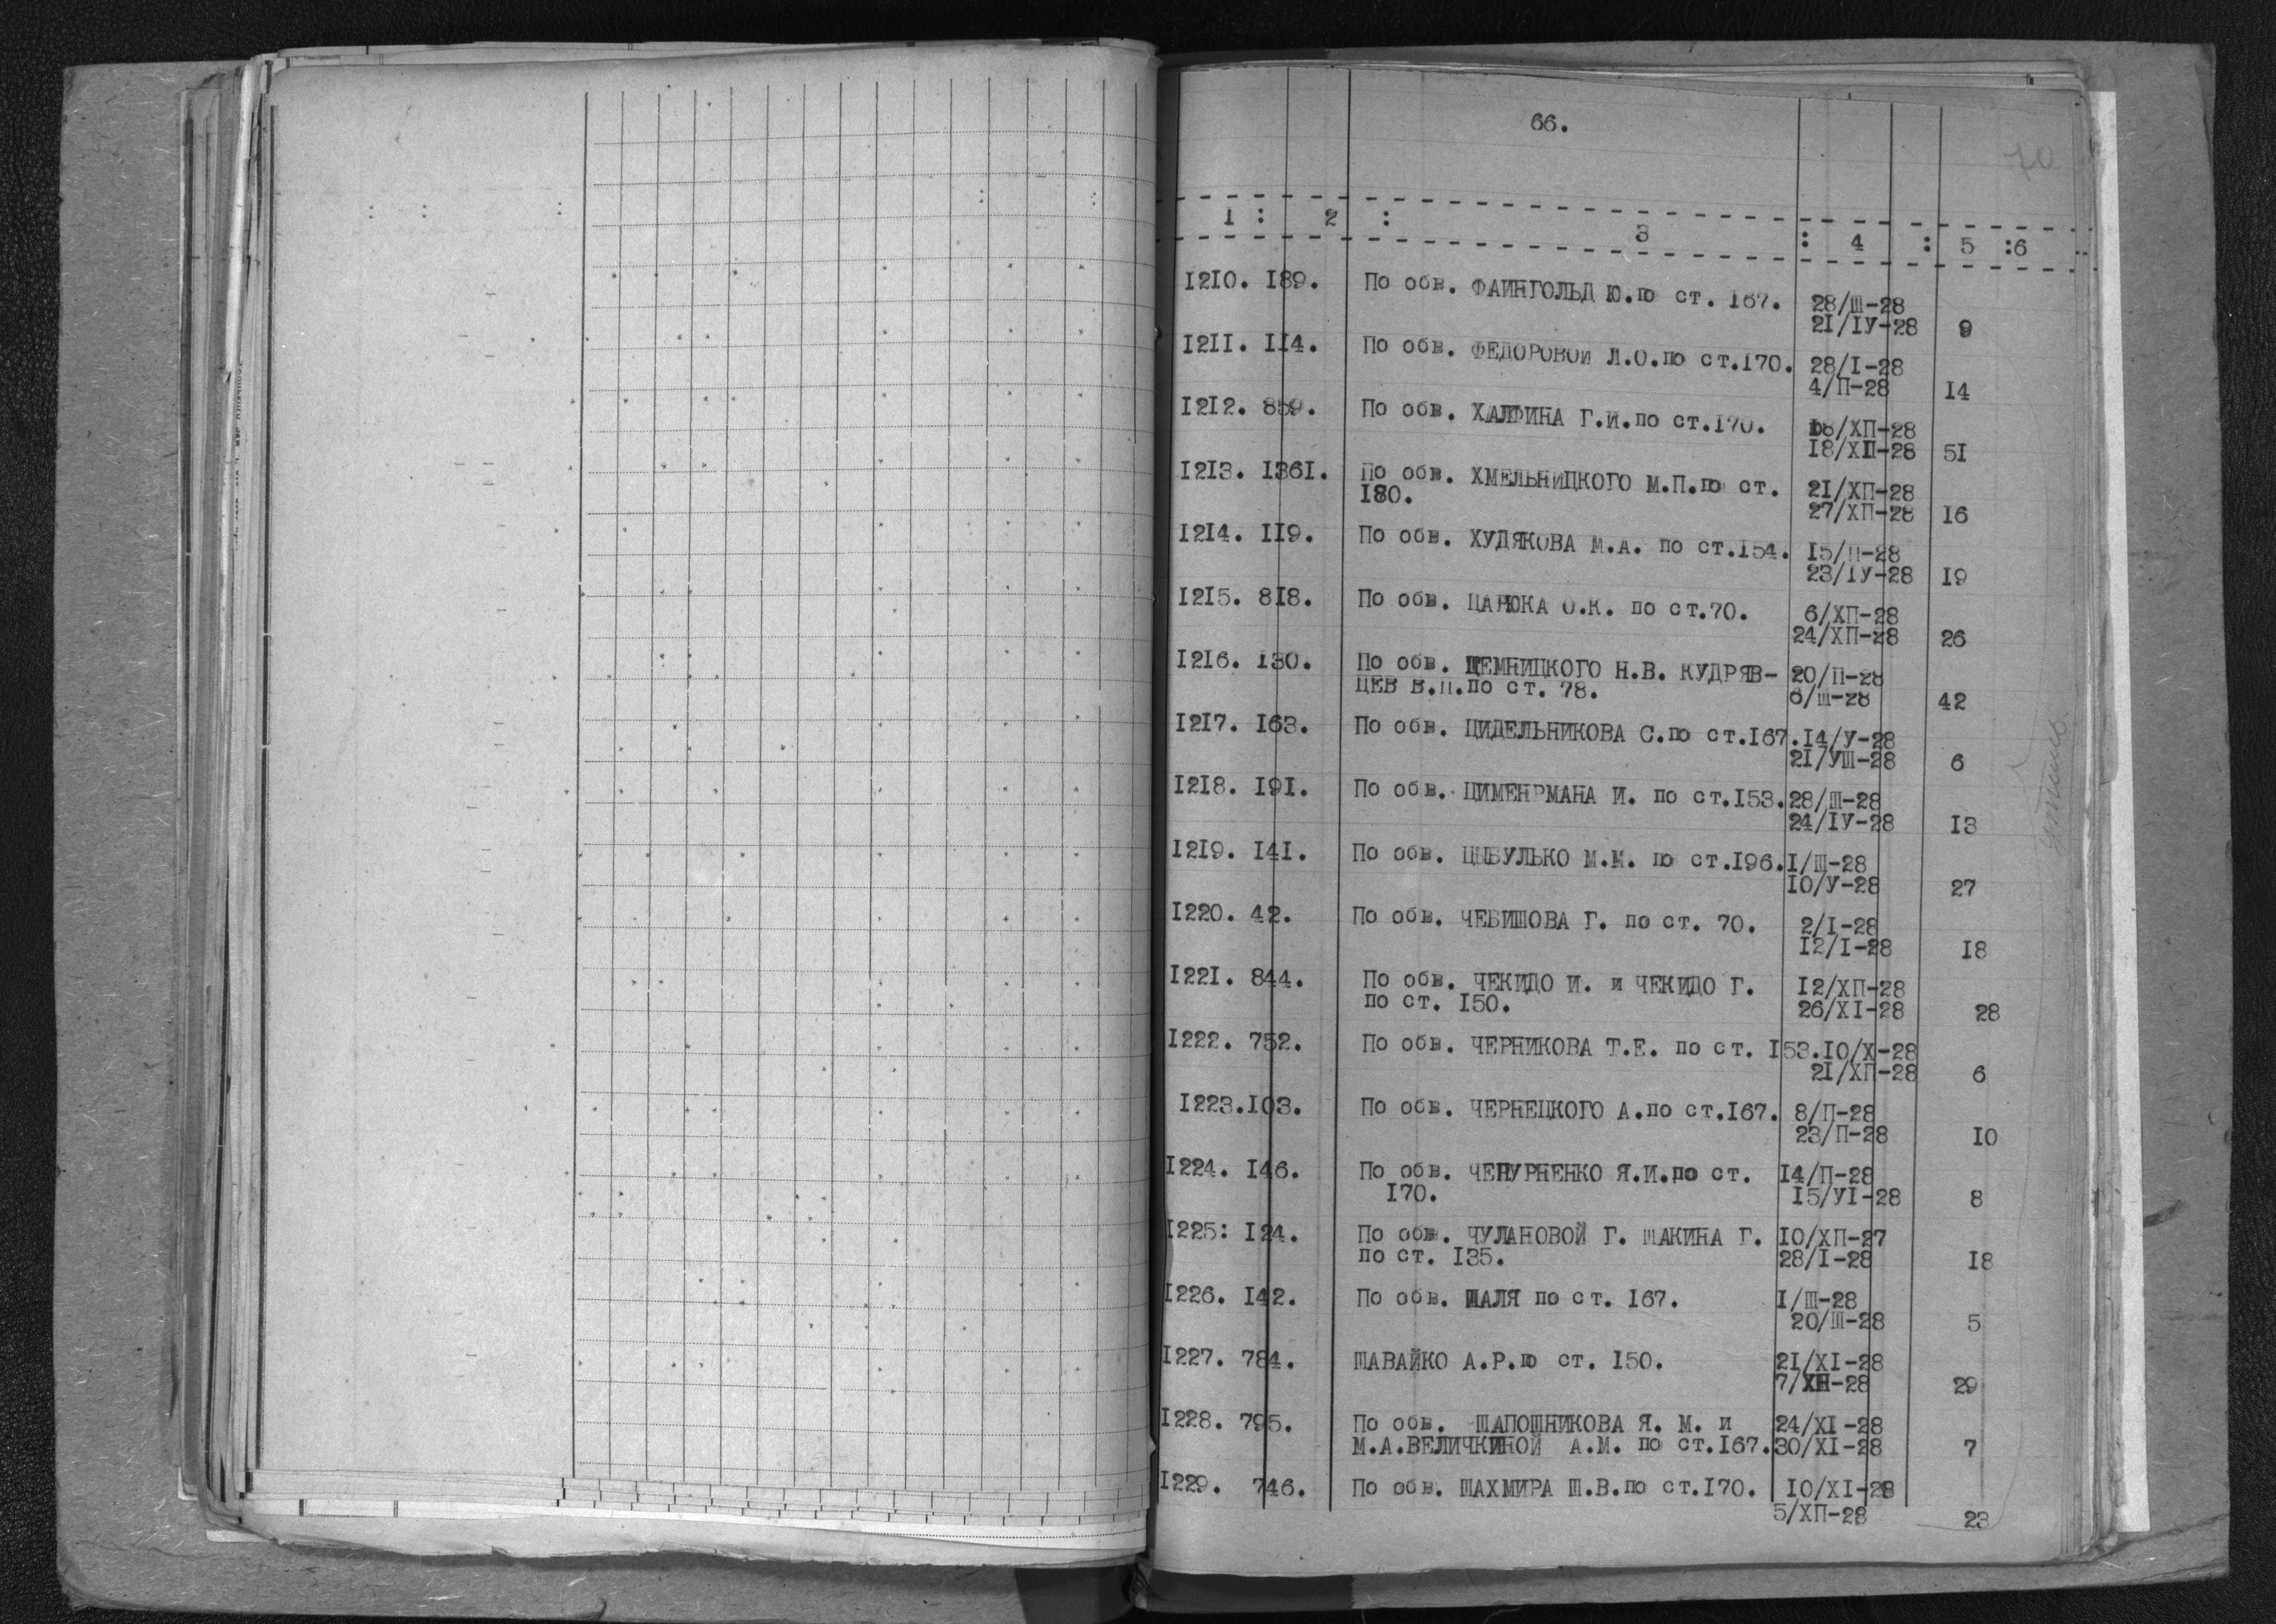 66.
70
1 : 2 : 3 : 4 : 5 : 6
1210. 189. По обв. ФАИНГОЛЬД Ю.по ст. 167. 28/Ш-28
21/IУ-28 9
1211. 114. По обв. ФЕДОРОВОЙ Л.О.по ст.170. 28/I-28
4/П-28 14
1212. 859. По обв. ХАЛФИНА Г.И.по ст.170. 18/ХП-28
18/ХП-28 51
1213. 1361. По обв. ХМЕЛЬНИЦКОГО М.П.по ст. 21/ХП-28
180. 27/ХП-28 16
1214. 119. По обв. ХУДЯКОВА М.А. по ст.154. 15/П-28
23/IУ-28 19
1215. 818. По обв. ЦАРЮКА О.К. по ст.70. 6/ХП-28
24/ХП-28 26
1216. 130. По обв. ЦЕМНИЦКОГО Н.В. КУДРЯВ- 20/П-28
ЦЕВ В.П.по ст. 78. 6/Ш-28 42
1217. 163. По обв. ЦИДЕЛЬНИКОВА С.по ст.167. 14/У-28
21/УШ-28 6
1218. 191. По обв. ЦИМЕНРМАНА И. по ст.153. 28/Ш-28
24/IУ-28 13
1219. 141. По обв. ЦЫБУЛЬКО М.М. по ст.196. 1/Ш-28
10/У-28 27
1220. 42. По обв. ЧЕБИШОВА Г. по ст. 70. 2/I-28
12/I-28 18
1221. 844. По обв. ЧЕКИДО И. и ЧЕКИДО Г. 12/ХП-28
по ст. 150. 26/XI-28 28
1222. 752. По обв. ЧЕРНИКОВА Т.Е. по ст. 153. 10/Х-28
21/ХП-28 6
1223. 103. По обв. ЧЕРНЕЦКОГО А.по ст.167. 8/П-28
23/П-28 10
1224. 146. По обв. ЧЕПУРНЕНКО Я.И.по ст. 14/П-28
170. 15/УI-28 8
1225: 124. По обв. ЧУЛАНОВОЙ Г. ШАКИНА Г. 10/ХП-27
по ст. 135. 28/I-28 18
1226. 142. По обв. ШАЛЯ по ст. 167. 1/Ш-28
20/Ш-28 5
1227. 784. ШАВАЙКО А.Р.по ст. 150. 21/XI-28
7/ХП-28 29
1228. 795. По обв. ШАПОШНИКОВА Я. М. и 24/XI-28
М.А.ВЕЛИЧКИНОЙ А.М. по ст.167. 30/XI-28 7
1229. 746. По обв. ШАХМИРА Ш.В.по ст.170. 10/XI-28
5/ХП-28 23